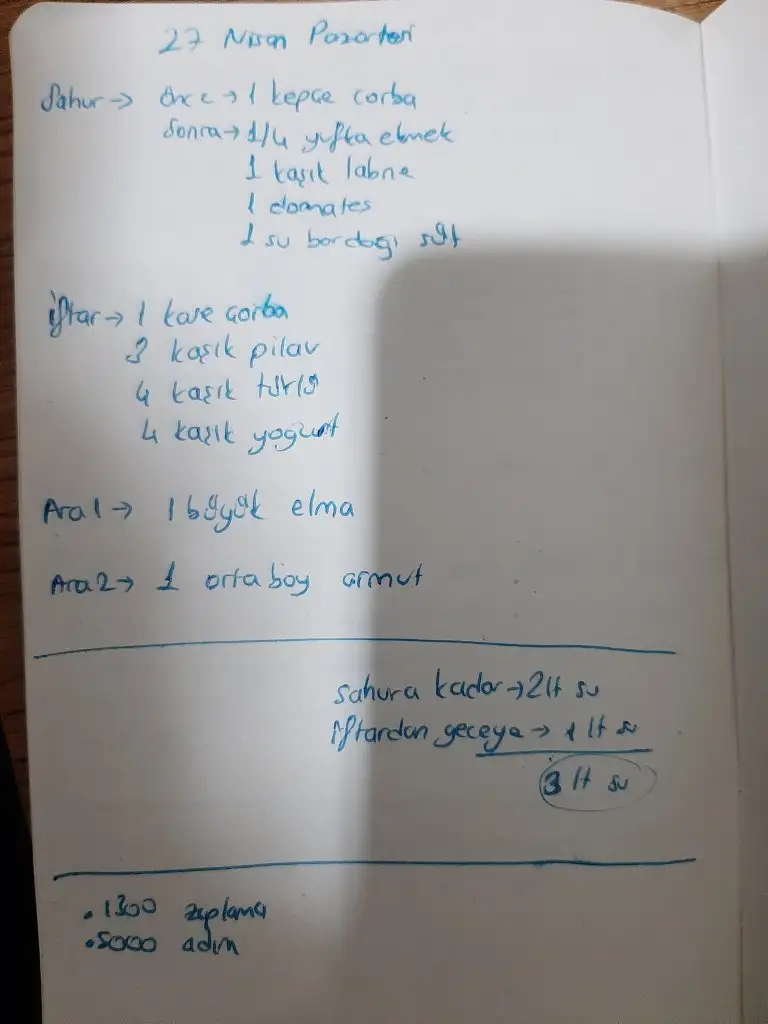 27 Nisan Pazartesi
Sahur → Önce → 1 kepçe çorba
Sonra → 1/4 yufka ekmek
1 kaşık labne
1 domates
1 su bardağı süt
İftar → 1 kase çorba
3 kaşık pilav
4 kaşık türlü
4 kaşık yoğurt
Ara1 → 1 büyük elma
Ara2 → 1 orta boy armut
Sahura kadar → 2 lt su
İftardan geceye → 1 lt su
3 lt su
.1300 zıplama
.5000 adım